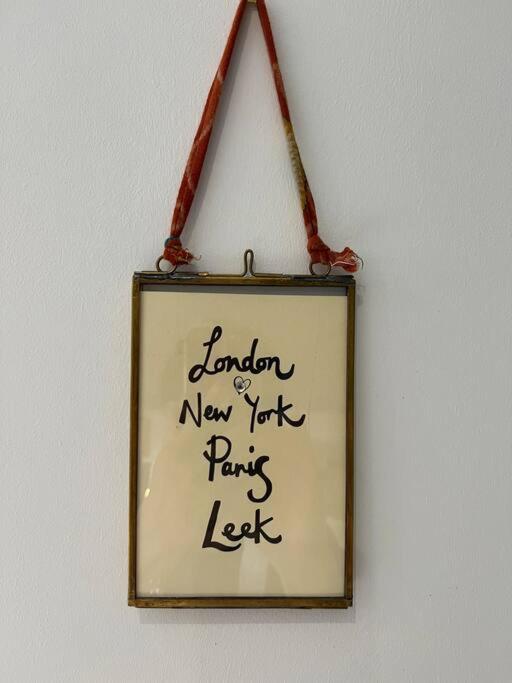 London
New York
Paris
Leek